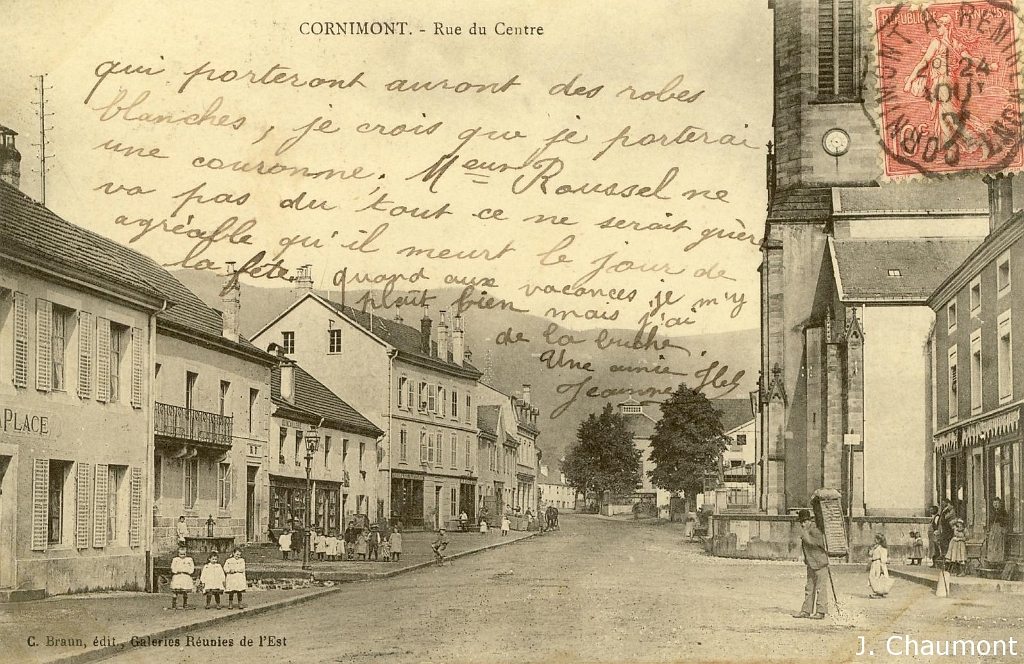 CORNIMONT. - Rue du Centre
qui porteront auront des robes
blanches, je crois que je porterai
une couronne. Meur Roussel ne
va pas du tout ce ne serait guère
agréable qu'il meurt le jour de
la fête, quand aux vacances je m'y
plait bien mais j'ai
de la
Une amie
Jeanne
RÉPUBLIQUE FRANÇAISE
CORNIMONT A REMIREMONT
24
AOUT
PLACE
C. Braun, édit., Galeries Réunies de l'Est
J. Chaumont